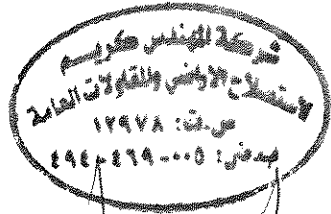 شركة المهندس كريم
لاستصلاح الاراضي والمقاولات العامة
س.ت: ١٢٩٧٨